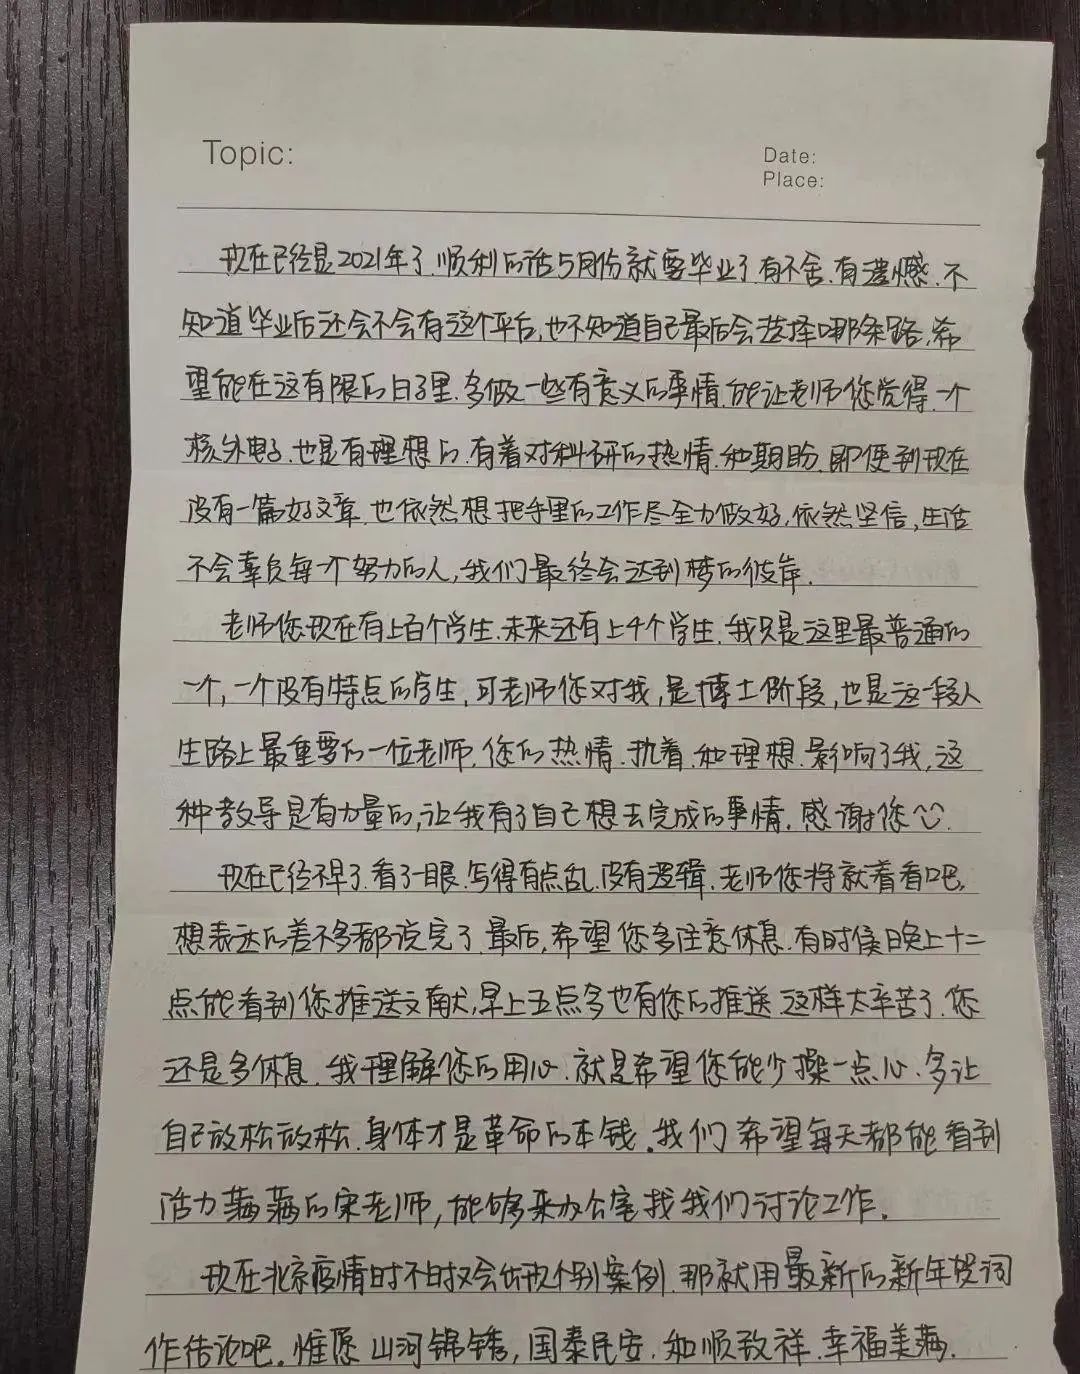 Topic:
Date:
Place:
现在已经是2021年了.顺利的话5月份就要毕业了.有不舍.有遗憾.不
知道毕业后还会不会有这个平台,也不知道自己最后会选择哪条路,希
望能在这有限的日子里.多做一些有意义的事情.能让老师您觉得.一个
核外电子.也是有理想的.有着对科研的热情.和期盼.即便到现在
没有一篇好文章.也依然想把手里的工作尽全力做好.依然坚信,生活
不会辜负每一个努力的人,我们最终会达到梦的彼岸.
老师您现在有上百个学生.未来还有上千个学生.我只是这里最普通的
一个,一个没有特点的学生,可老师您对我,是博士阶段,也是这一段人
生路上最重要的一位老师.您的热情.执着.和理想.影响了我,这
种教导是有力量的,让我有了自己想去完成的事情.感谢您
现在已经不早了.看了一眼.写得有点乱.没有逻辑.老师您将就着看吧,
想表达的差不多都说完了.最后,希望您多注意休息.有时候晚上十二
点能看到您推送文献,早上五点多也有您的推送.这样太辛苦了.您
还是多休息.我理解您的用心.就是希望您能少操一点心.多让
自己放松放松.身体才是革命的本钱.我们希望每天都能看到
活力满满的宋老师,能够来办公室找我们讨论工作.
现在北京疫情时不时又会出现个别案例.那就用最新的新年贺词
作结论吧.惟愿山河锦绣,国泰民安.和顺致祥.幸福美满.